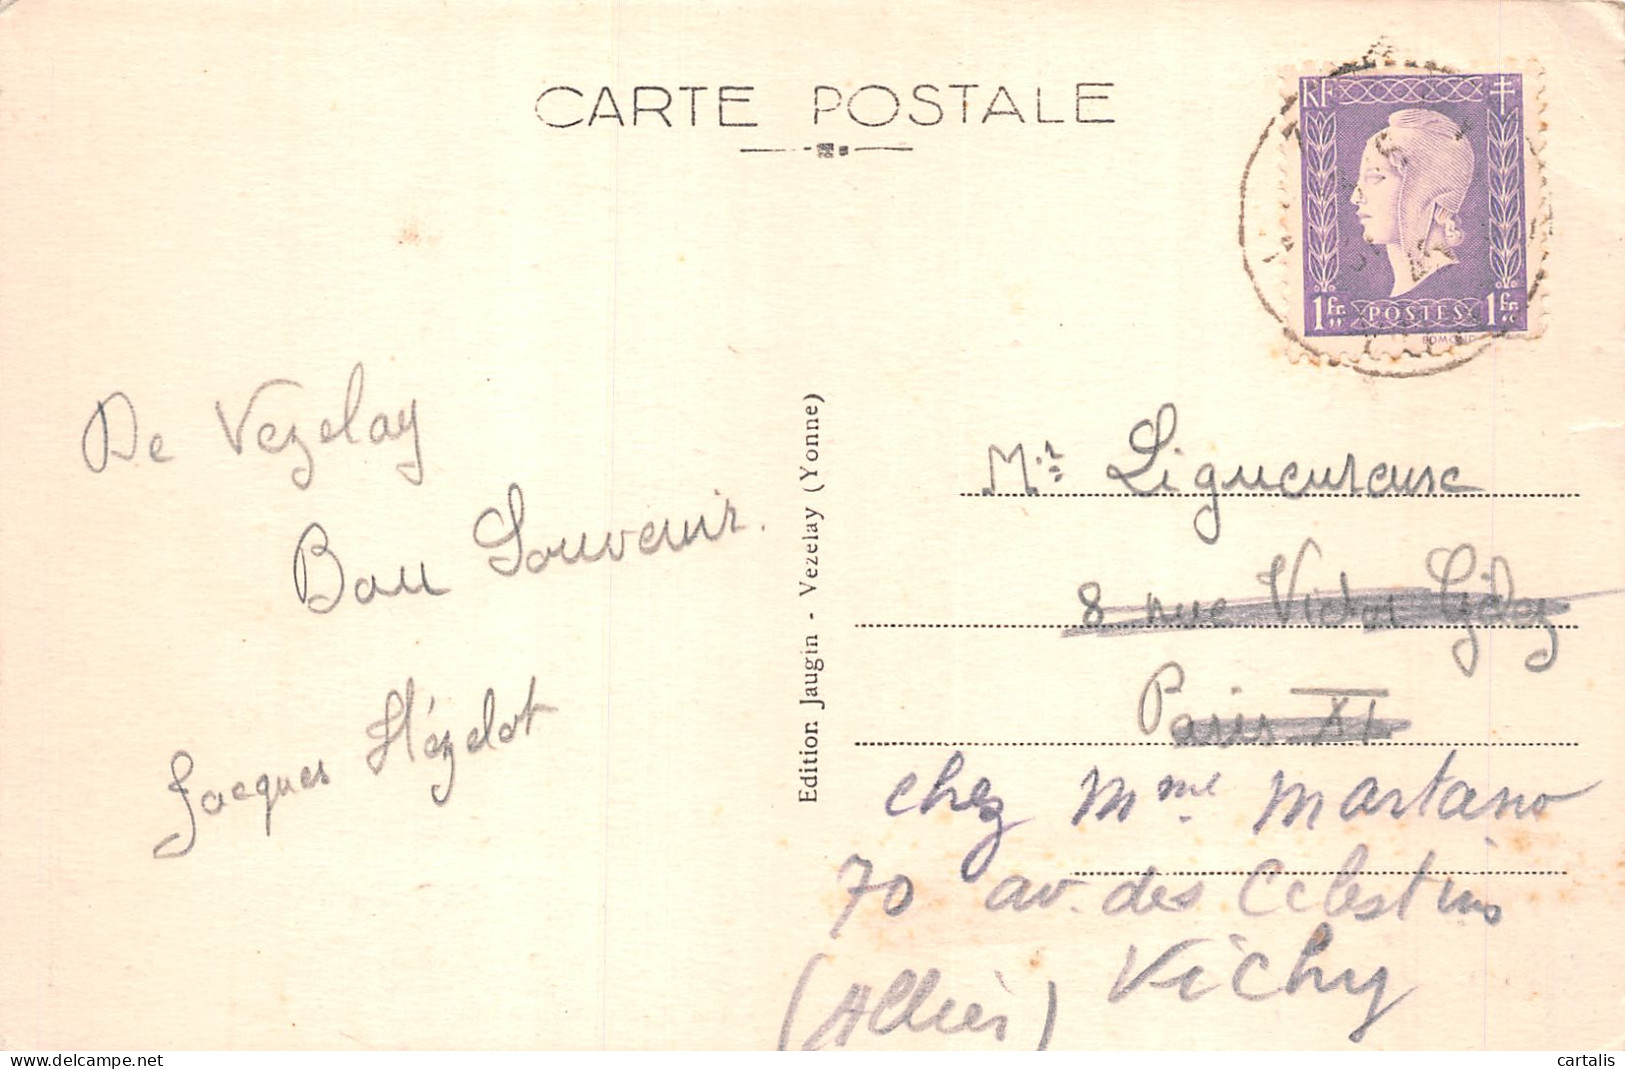 CARTE POSTALE
RF
1fr.
POSTES
1fr.
De Vezelay
Bon Souvenir.
Jacques Hézelot
Edition Jaugin - Vezelay (Yonne)
Mr Ligueureux
8 rue Victor
Paris XI
chez Mme Martano
70 av. des Celestins
Vichy
(Allier)
www.delcampe.net
cartalis